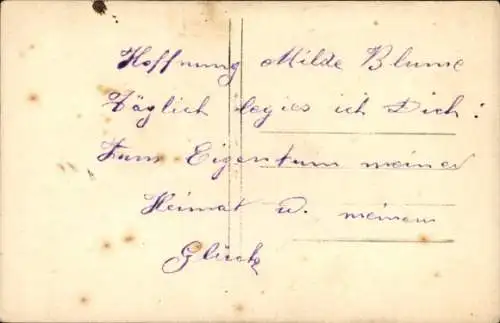 Hoffnung Milde Blume
Täglich legies ich Dich:
Zum Eigentum meiner
Heimat u. meinem
Glück